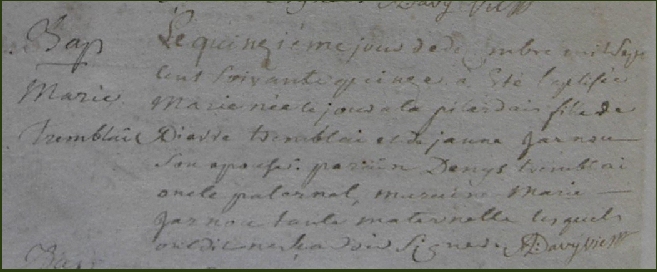 Davy vic
Bap
Marie
Tremblais
Le quinzième jour de décembre mil sept
cent soixante et quinze a été baptisée
Marie née le jour à la pilardais fille de
Pierre tremblai et de jeanne Jarnou
Son epouse. parrin Denys tremblai
oncle paternel, maraine Marie
Jarnou tante maternelle lesquels
ont dit ne sça voir Signer. Davy vic
Bap